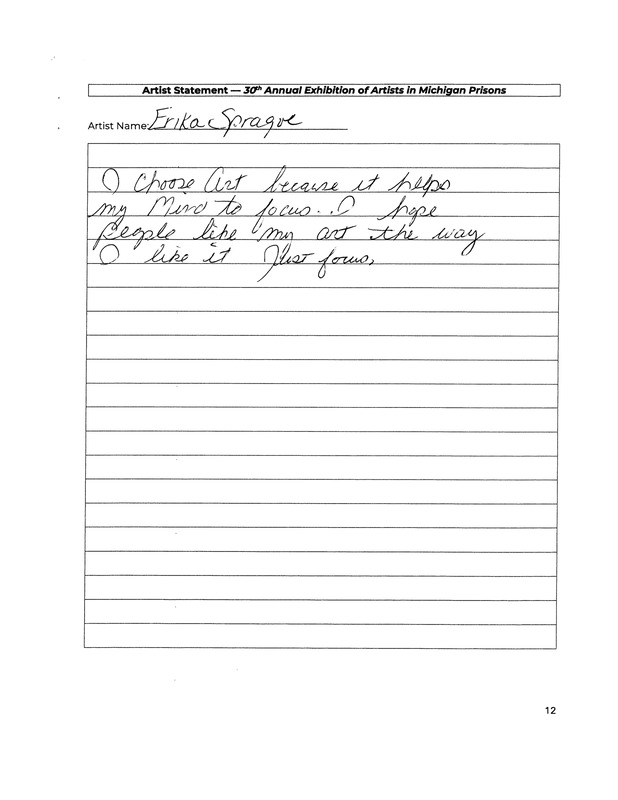 Artist Statement — 30th Annual Exhibition of Artists in Michigan Prisons
Artist Name: Erika Sprague
I Choose Art because it helps
my Mind to focus.. I hope
people like my art the way
I like it Just focus,
12